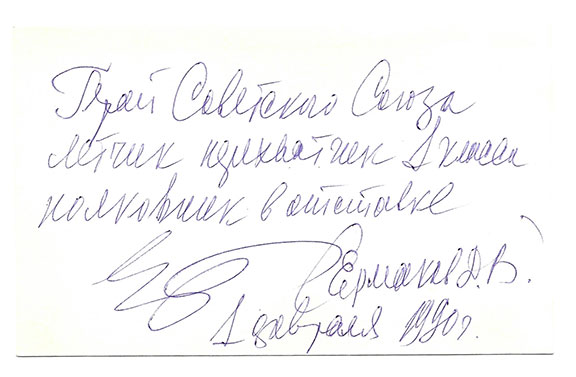 Герой Советского Союза
летчик перехватчик 1 класса
полковник в отставке
Ермаков Д. В.
1 февраля 1990 г.